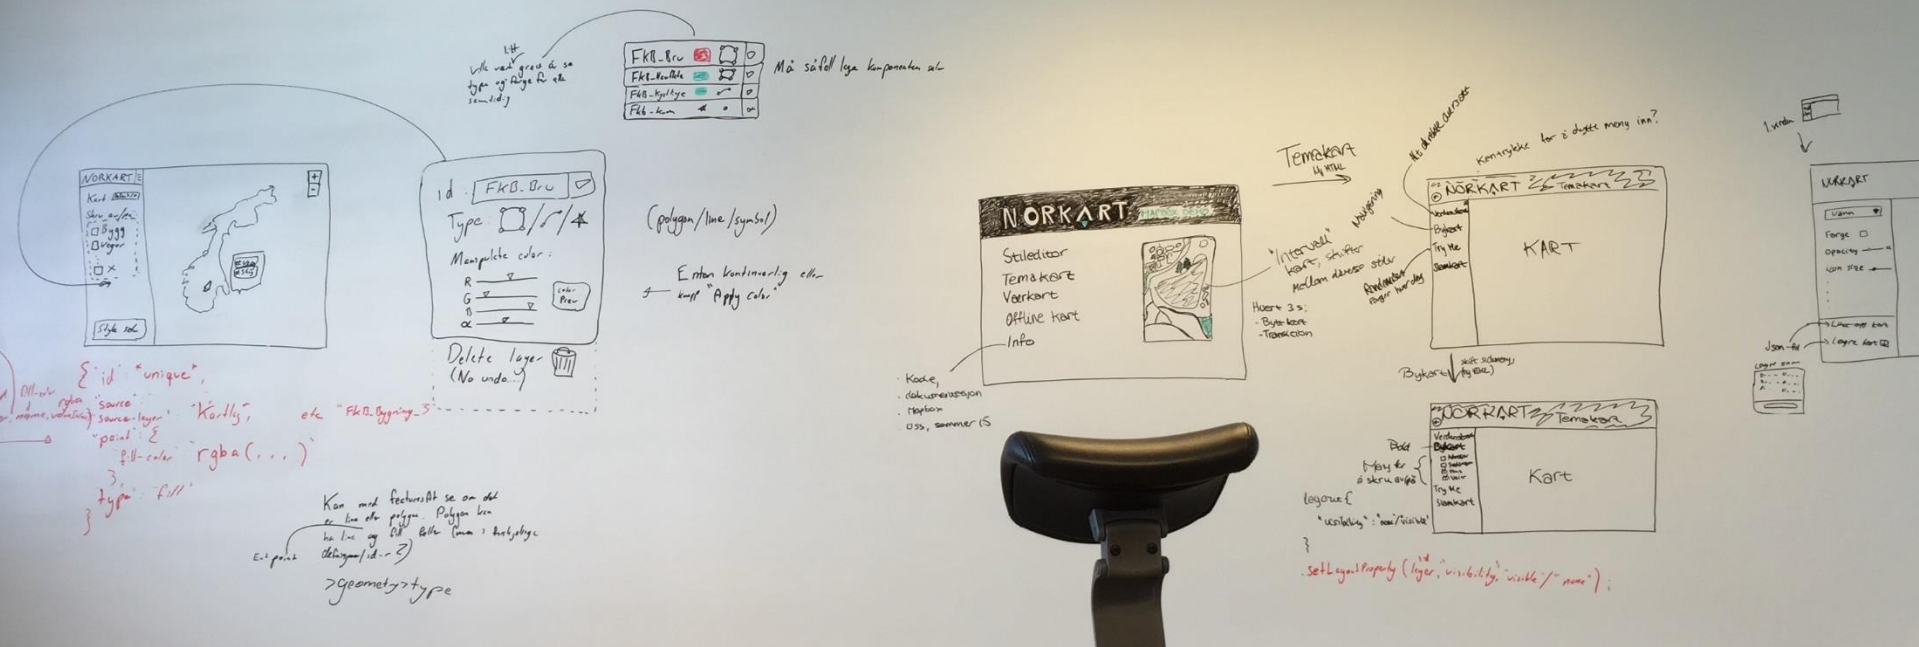 Litt
Ville vært greit å se
type og farge for alle
samtidig
FKB_Bru
FKB_Kystkye
FKB_kom
Må såfall lage komponenten selv
NORKART
Kart
Skru av/på
Bygg
Veger
X
Style selv
+
-
id: FKB_Bru
Type:
Manipulate color:
R
G
B
α
color
Prev
Delete layer
(No undo...)
(polygon/line/symbol)
Enten kontinuerlig eller
knapp "Apply color"
{ "id": "unique",
rgba
"source"
"source-layer" "Kartlag", etc "FKB_Bygning_3"
"paint": {
"fill-color" "rgba(...)"
},
"type": "fill"
}
Kan med featuresAt se om det
er line eller polygon. Polygon kan
ha line og fill
Ett point
>geometry>type
NORKART MAPBOX DEMO
Stileditor
Temakart
Værkart
Offline kart
Info
- Kode,
- dokumentasjon
- Mapbox
- oss, sommer 15
"Intervall"
kart, skifter
mellom diverse stiler
Hvert 3 s:
- Bytt kart
- Transition
Temakart
Ny HTML
Navigering
Kan trykke for å dytte meny inn?
NORKART Temakart
Verdensdata
Bykart
Try Me
Stemkart
KART
Bykart
NORKART Temakart
Verdensdata
Bykart
Try Me
Stemkart
Kart
Bold
Meny for
å skru av/på
layout {
"visibility": "none/visible"
}
.setLayoutProperty(layer, "visibility", "visible"/"none");
id
1. vindu
NORKART
Vann
Farge
Opacity
icon size
Last opp kart
Lagre kart
Json-fil
Lagre som